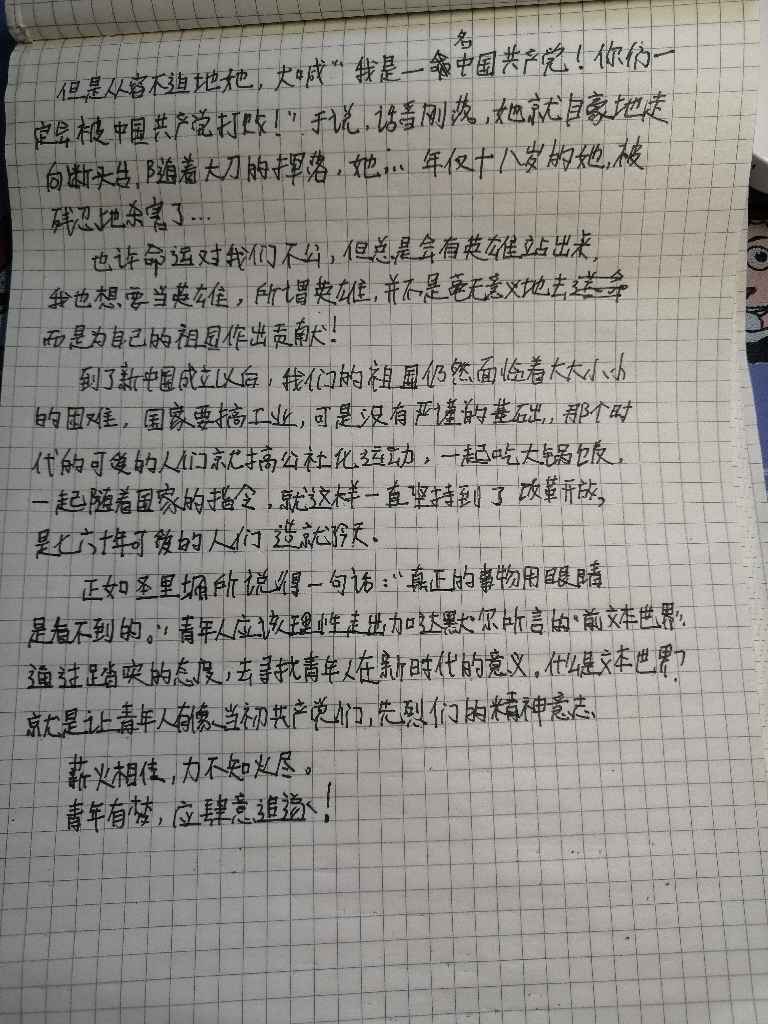 但是从容不迫地她，大喊“我是一名中国共产党！你们一
定会被中国共产党打败！”于说，话音刚落，她就自豪地走
向断头台，随着大刀的挥落，她… 年仅十八岁的她，被
残忍地杀害了…
也许命运对我们不公，但总是会有英雄站出来，
我也想要当英雄，所谓英雄，并不是毫无意义地去送命
而是为自己的祖国作出贡献！
到了新中国成立以后，我们的祖国仍然面临着大大小小
的困难，国家要搞工业，可是没有严谨的基础，那个时
代的可爱的人们就搞公社化运动，一起吃大锅饭，
一起随着国家的指令，就这样一直坚持到了改革开放，
是七六十年可爱的人们造就今天。
正如圣里埔所说得一句话：“真正的事物用眼睛
是看不到的。”青年人应该理性走出加达默尔所言的“前文本世界”，
通过的态度，去寻找青年人在新时代的意义。什么是文本世界？
就是让青年人有像当初共产党们，先烈们的精神意志、
薪火相传，力不知火尽。
青年有梦，应肆意追逐！